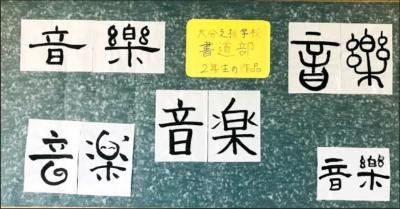 音樂
大分支援学校
書道部
2年生の作品
音樂
音楽
音楽
音樂